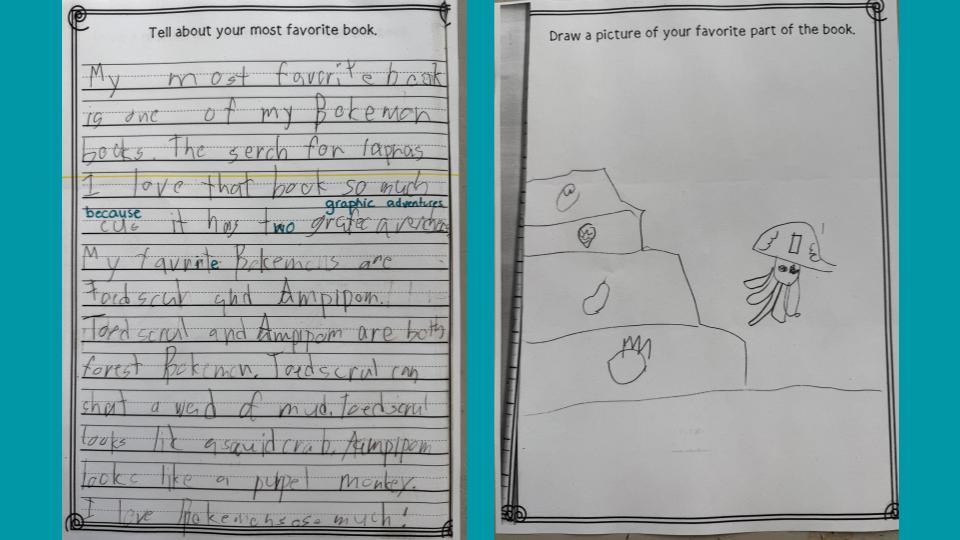 Tell about your most favorite book.
My most favorite book
is one of my Bokemon
books. The serch for laprias
I love that book so much
graphic adventures
because
cus it has two grafec
My favrite Bokemons are
Toedscrul and Ampipom.
Toedscrul and Ampipom are both
forest Bokemon. Toedscrul can
shat a wad of mud. Toedscrul
looks lik a squid crab. Aampipom
looks like a purpel monkey.
I love Bokemons so much!
Draw a picture of your favorite part of the book.